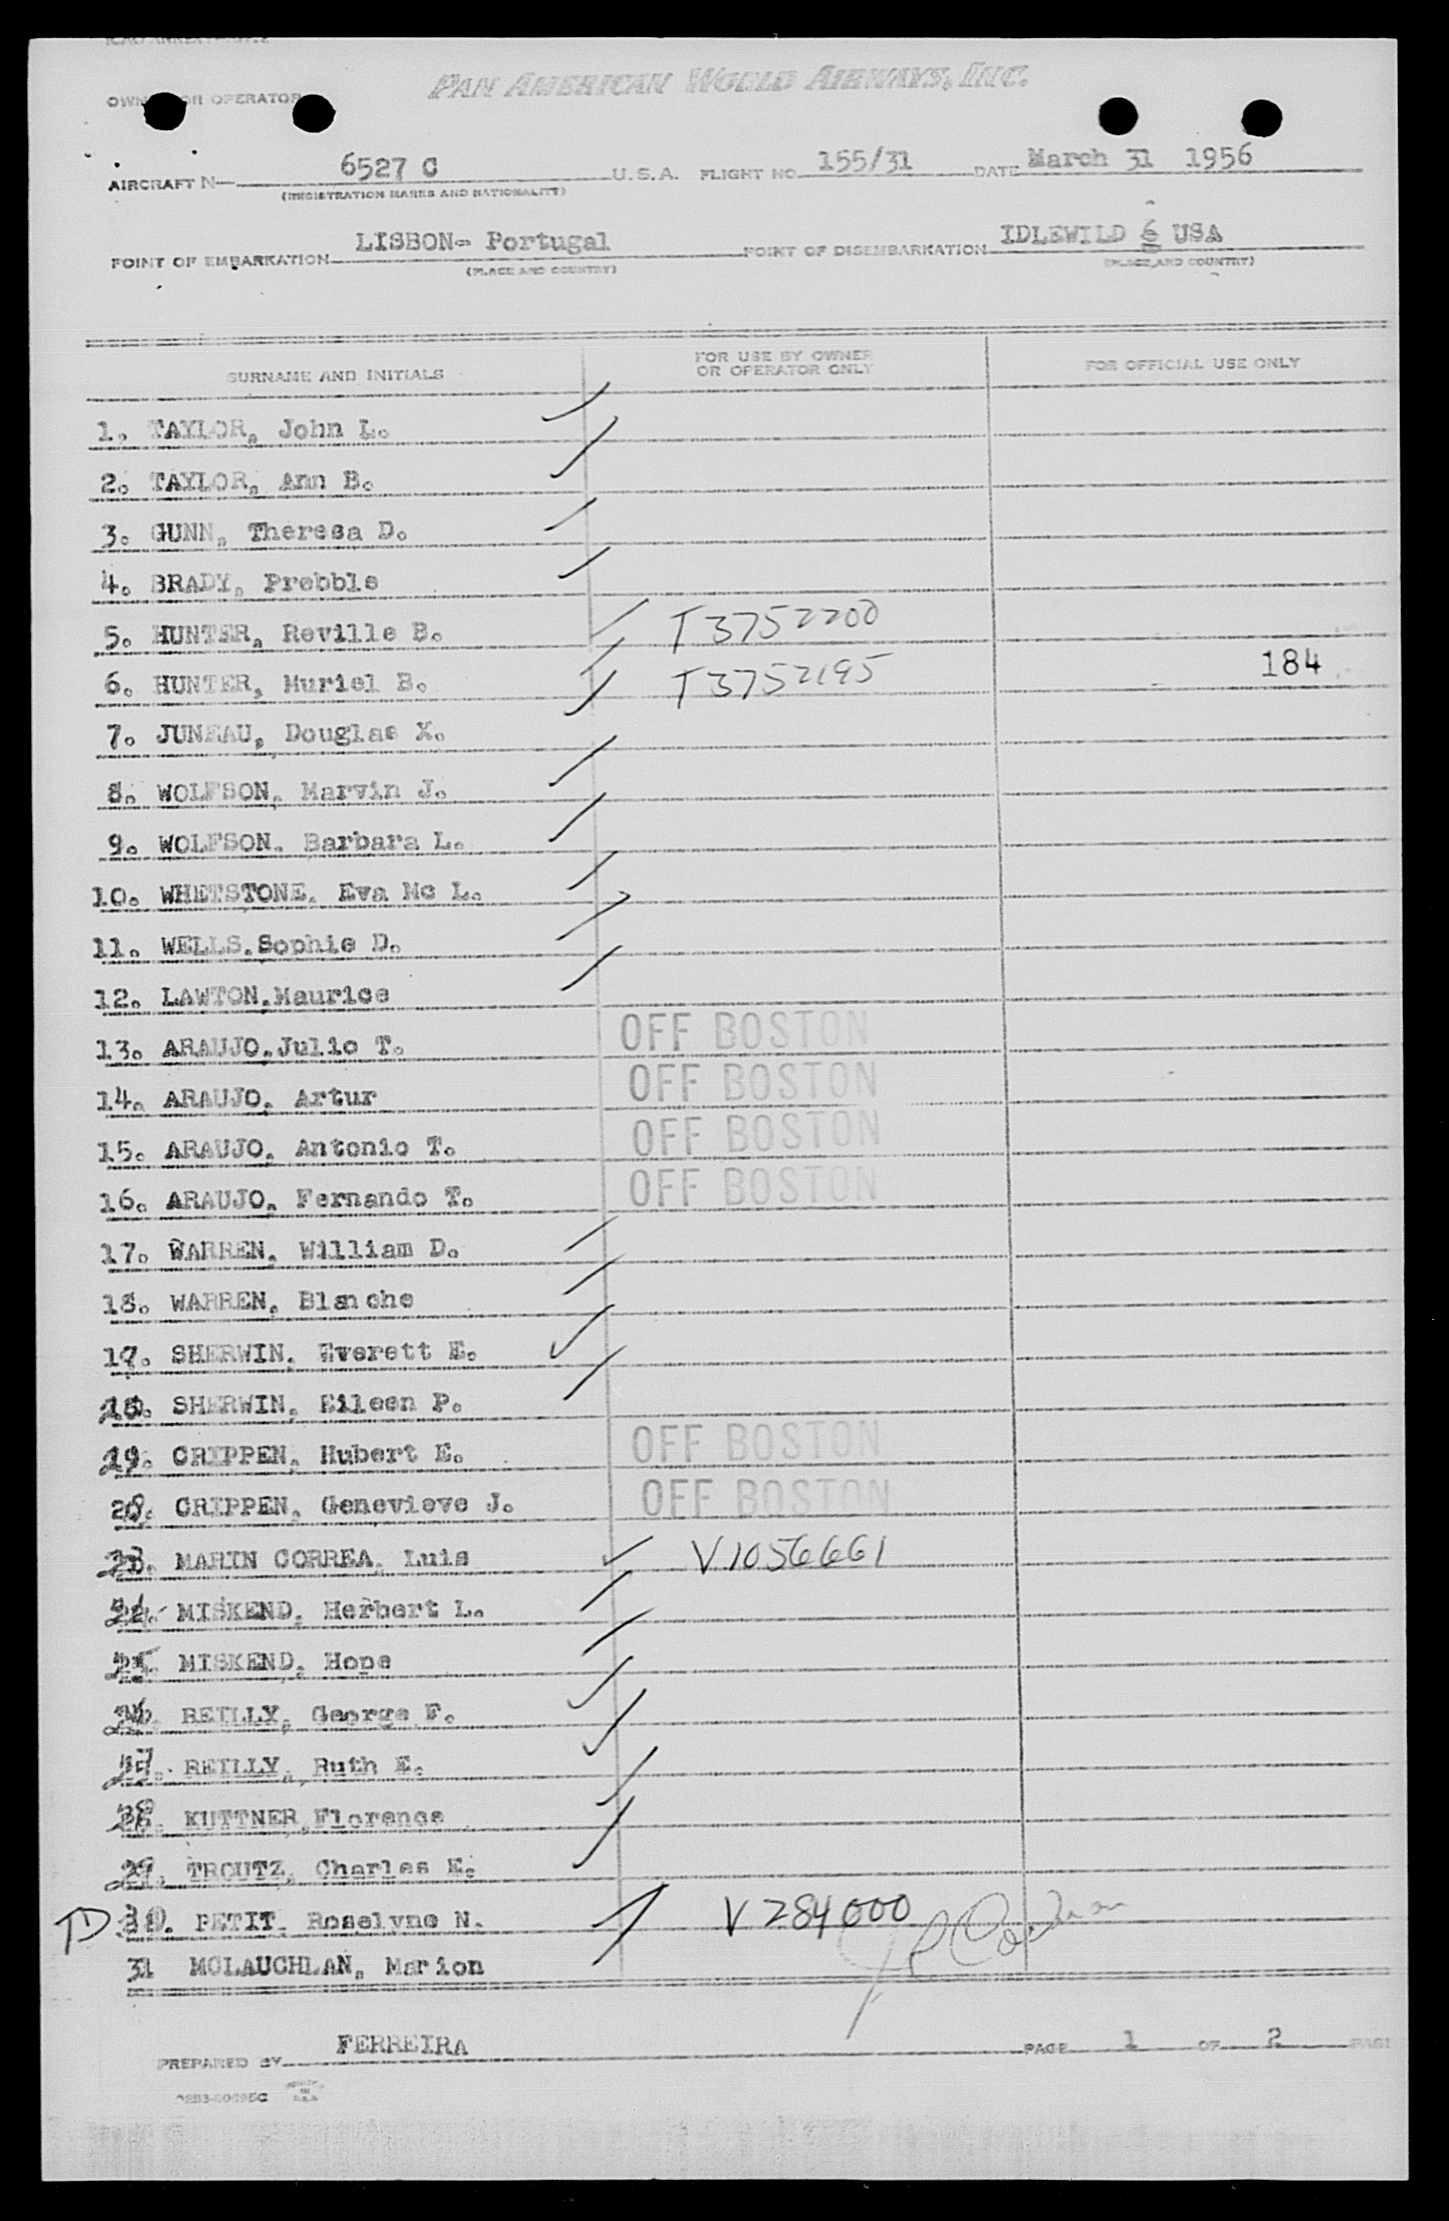 PAN AMERICAN WORLD AIRWAYS, INC.
OWNER OR OPERATOR
AIRCRAFT N— 6527 C U.S.A. FLIGHT NO 155/31 DATE March 31 1956
(REGISTRATION MARKS AND NATIONALITY)
POINT OF EMBARKATION LISBON- Portugal POINT OF DISEMBARKATION IDLEWILD 6 USA
(PLACE AND COUNTRY) (PLACE AND COUNTRY)
SURNAME AND INITIALS FOR USE BY OWNER OR OPERATOR ONLY FOR OFFICIAL USE ONLY
1. TAYLOR, John L.
2. TAYLOR, Ann B.
3. GUNN, Theresa D.
4. BRADY, Prebble
5. HUNTER, Reville B. T3752200
6. HUNTER, Muriel B. T3752195 184
7. JUNEAU, Douglas X.
8. WOLFSON, Marvin J.
9. WOLFSON, Barbara L.
10. WHETSTONE, Eva Mc L.
11. WELLS,Sophie D.
12. LAWTON,Maurice
13. ARAUJO,Julio T. OFF BOSTON
14. ARAUJO, Artur OFF BOSTON
15. ARAUJO, Antonio T. OFF BOSTON
16. ARAUJO, Fernando T. OFF BOSTON
17. WARREN, William D.
18. WARREN, Blanche
19. SHERWIN, Everett E.
20. SHERWIN, Eileen P.
21. CRIPPEN, Hubert E. OFF BOSTON
22. CRIPPEN, Genevieve J. OFF BOSTON
23. MARIN CORREA, Luis V1056661
24. MISKEND, Herbert L.
25. MISKEND, Hope
26. REILLY, George F.
27. REILLY, Ruth E.
28. KUTTNER,Florence
29. TROUTZ, Charles E.
30. PETIT, Roselyne N. V284000
31 MCLAUCHLAN, Marion
PREPARED BY FERREIRA PAGE 1 OF 2 PAGES